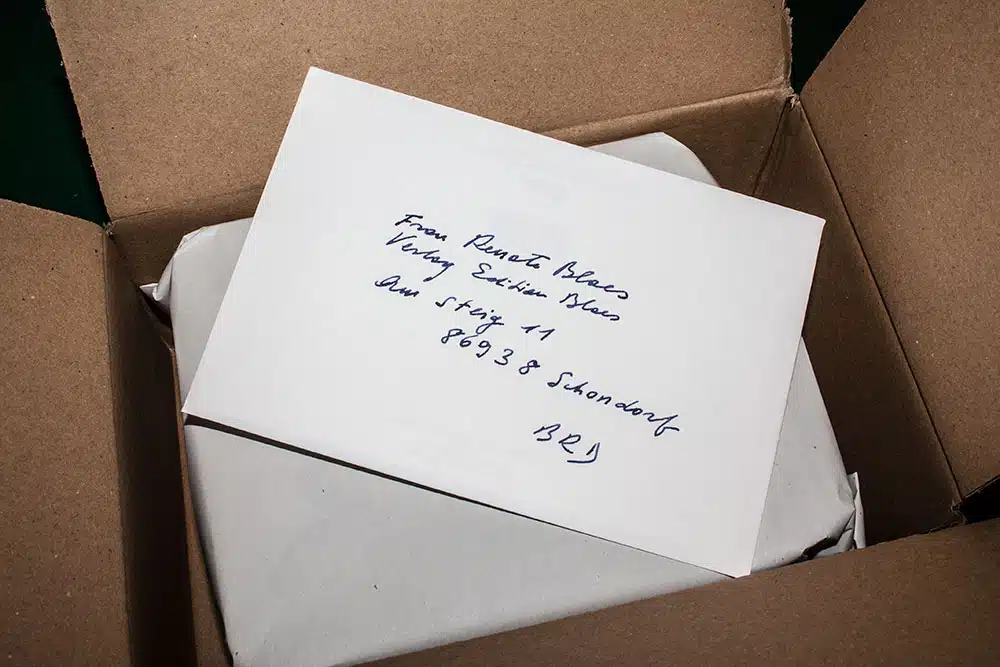 Frau Renate Blaes
Verlag Edition Blaes
Am Steig 11
86938 Schondorf
BRD